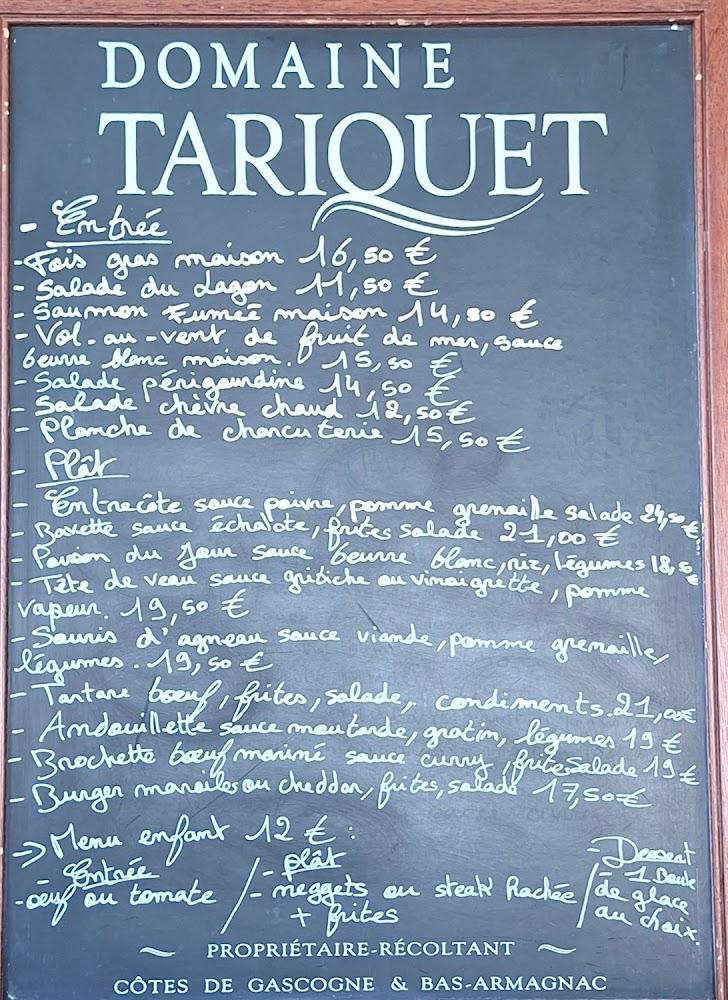 DOMAINE
TARIQUET
- Entrée
- Fois gras maison 16,50 €
- Salade du Lagon 11,50 €
- Saumon Fumeé maison 14,50 €
- Vol.au-vent de fruit de mer, sauce
beurre blanc maison. 15,50 €
- Salade périgourdine 14,50 €
- Salade chèvre chaud 12,50 €
- Planche de charcuterie 15,50 €
- Plât
- Entrecôte sauce poivre, pomme grenaille salade 24,50 €
- Bavette sauce échalote, frites salade 21,00 €
- Poisson du Jour sauce beurre blanc, riz, légumes 18,50 €
- Tête de veau sauce gribiche ou vinaigrette, pomme
vapeur. 19,50 €
- Souris d'agneau sauce viande, pomme grenaille,
légumes. 19,50 €
- Tartare boeuf, frites, salade, condiments. 21,00€
- Andouillette sauce moutarde, gratin, légumes 19 €
- Brochette boeuf mariné sauce curry, frite salade 19 €
- Burger maroilles ou cheddar, frites, salade 17,50€
-> Menu enfant 12 € :
- Entrée / - plât / - Dessert
- oeuf ou tomate / - neggets ou steak hachée / - 1 Boule
+ frites de glace
au choix.
~ PROPRIÉTAIRE-RÉCOLTANT ~
CÔTES DE GASCOGNE & BAS-ARMAGNAC